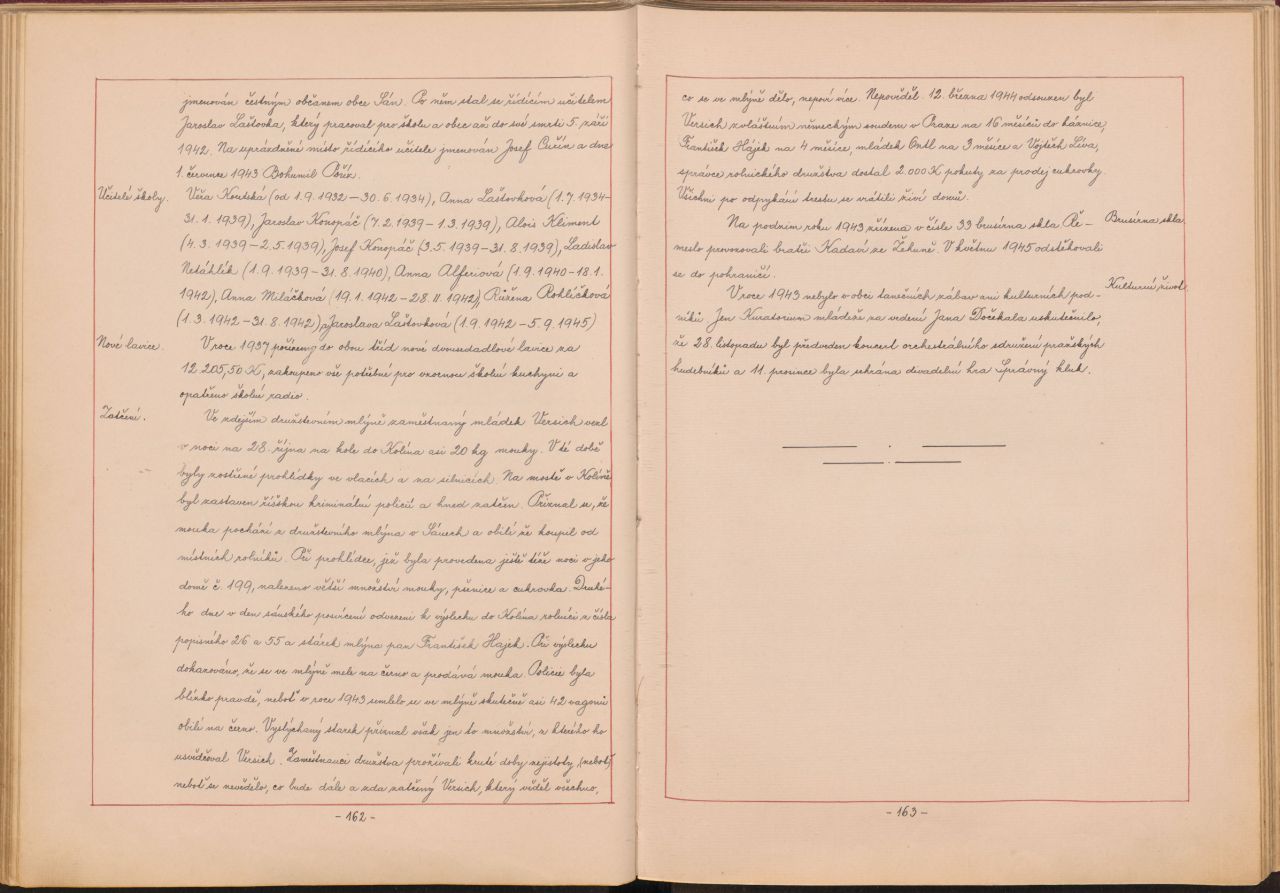 jmenován čestným občanem obce Sán. Po něm stal se řídícím učitelem
Jaroslav Laštovka, který pracoval pro školu a obec až do své smrti 5. září
1942. Na uprázdněné místo řídícího učitele jmenován Josef Cuřín a dne
1. července 1943 Bohumil Bříz.
Učitelé školy. Věra Koutská (od 1.9.1932 – 30.6.1934), Anna Laštovková (1.7.1934–
31.1.1939), Jaroslav Konopáč (7.2.1939 – 1.3.1939), Alois Kliment
(4.3.1939 – 2.5.1939), Josef Konopáč (3.5.1939 – 31.8.1939), Ladislav
Netáhlík (1.9.1939 – 31.8.1940), Anna Alferiová (1.9.1940 – 18.1.
1942), Anna Miláčková (19.1.1942 – 28.11.1942) Růžena Rohlíčková
(1.3.1942 – 31.8.1942) a Jaroslava Laštovková (1.9.1942 – 5.9.1945)
Nové lavice. V roce 1937 pořízeny do obou tříd nové dvousedadlové lavice za
12.205,50 K, zakoupeno vše potřebné pro vzornou školní kuchyni a
opatřeno školní radio.
Zatčení. Ve zdejším družstevním mlýně zaměstnaný mládek Versich vezl
v noci na 28. října na kole do Kolína asi 20 kg mouky. V té době
byly zostřené prohlídky ve vlacích a na silnicích. Na mostě v Kolíně
byl zastaven říšskou kriminální policií a hned zatčen. Přiznal se, že
mouka pochází z družstevního mlýna v Sánech a obilí že koupil od
místních rolníků. Při prohlídce, jež byla provedena ještě téže noci v jeho
domě č. 199, nalezeno větší množství mouky, pšenice a cukrovka. Druhé-
ho dne v den sánského posvícení odvezeni k výslechu do Kolína rolníci z čísla
popisného 26 a 55 a stárek mlýna pan František Hajek. Při výslechu
dokazováno, že se ve mlýně mele na černo a prodává mouka. Policie byla
blízko pravdě, neboť v roce 1943 semlelo se ve mlýně skutečně asi 42 vagonů
obilí na černo. Vyslýchaný starek přiznal však jen to množství, z kterého ho
usvědčoval Versich. Zaměstnanci družstva prožívali kruté doby nejistoty (neboť)
neboť se nevědělo, co bude dále a zda zatčený Versich, který věděl všechno,
- 162 -
co se ve mlýně dělo, nepoví více. Nepověděl. 12. března 1944 odsouzen byl
Versich zvláštním německým soudem v Praze na 16 měsíců do káznice,
František Hájek na 4 měsíce, mládek Ontl na 3 měsíce a Vojtěch Líva,
správce rolnického družstva dostal 2.000 K pokuty za prodej cukrovky.
Všichni po odpykání trestu se vrátili živi domů.
Na podzim roku 1943 zřízena v čísle 33 brusírna skla. Ře- Brusírna skla
meslo provozovali bratři Kadaví ze Žehuně. V květnu 1945 odstěhovali
se do pohraničí.
V roce 1943 nebylo v obci tanečních zábav ani kulturních pod- Kulturní život
niků. Jen Kuratorium mládeže za vedení Jana Dočekala uskutečnilo,
že 28. listopadu byl předveden koncert orchestrálního sdružení pražských
hudebníků a 11. prosince byla sehrána divadelní hra Správný kluk.
- 163 -